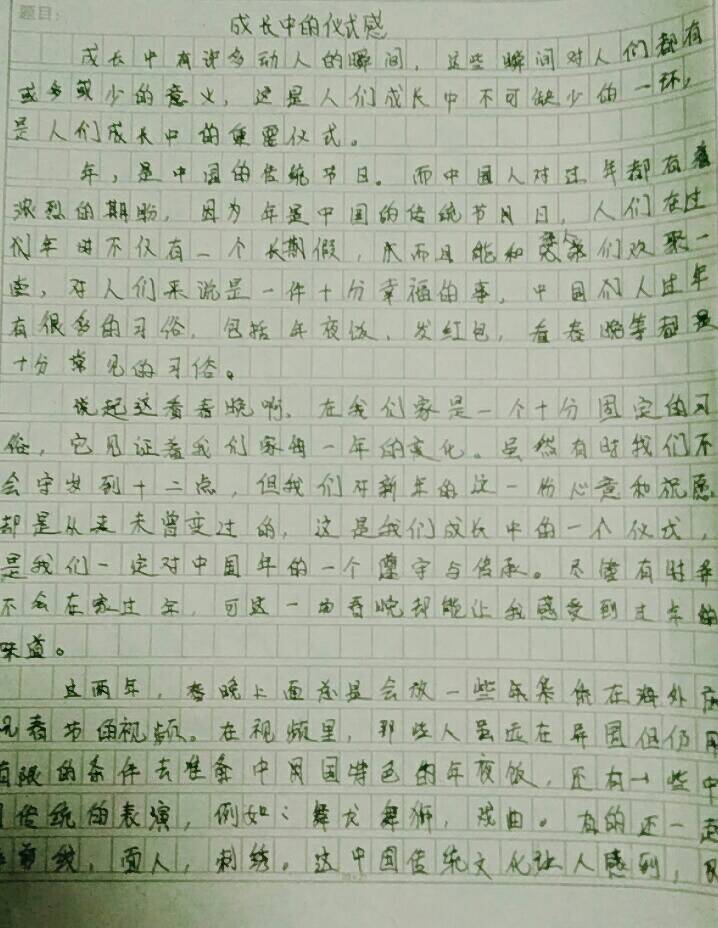 题目：
成长中的仪式感
成长中有许多动人的瞬间，这些瞬间对人们都有
或多或少的意义，这是人们成长中不可缺少的一环，
是人们成长中的重要仪式。
年，是中国的传统节日。而中国人对过年都有着
浓烈的期盼，因为年是中国的传统节日，人们在过
年时不仅有一个长期假，而且能和家人们欢聚一
堂，对人们来说是一件十分幸福的事，中国人过年
有很多的习俗，包括年夜饭，发红包，看春晚等都是
十分常见的习俗。
说起这看春晚啊，在我们家是一个十分固定的习
俗，它见证着我们家每一年的变化。虽然有时我们不
会守岁到十二点，但我们对新年的这一份心意和祝愿
却是从来未曾变过的，这是我们成长中的一个仪式，
是我们一定对中国年的一个遵守与传承。尽管有时
不会在家过年，可这一曲春晚却能让我感受到过年的
味道。
这两年，春晚上面总是会放一些在海外
春节的视频。在视频里，那些人虽远在异国但仍用
有限的条件去准备中国特色的年夜饭，还有一些中
国传统的表演，例如：舞龙舞狮，戏曲。有的还一起
面人，刺绣。这中国传统文化让人感到，